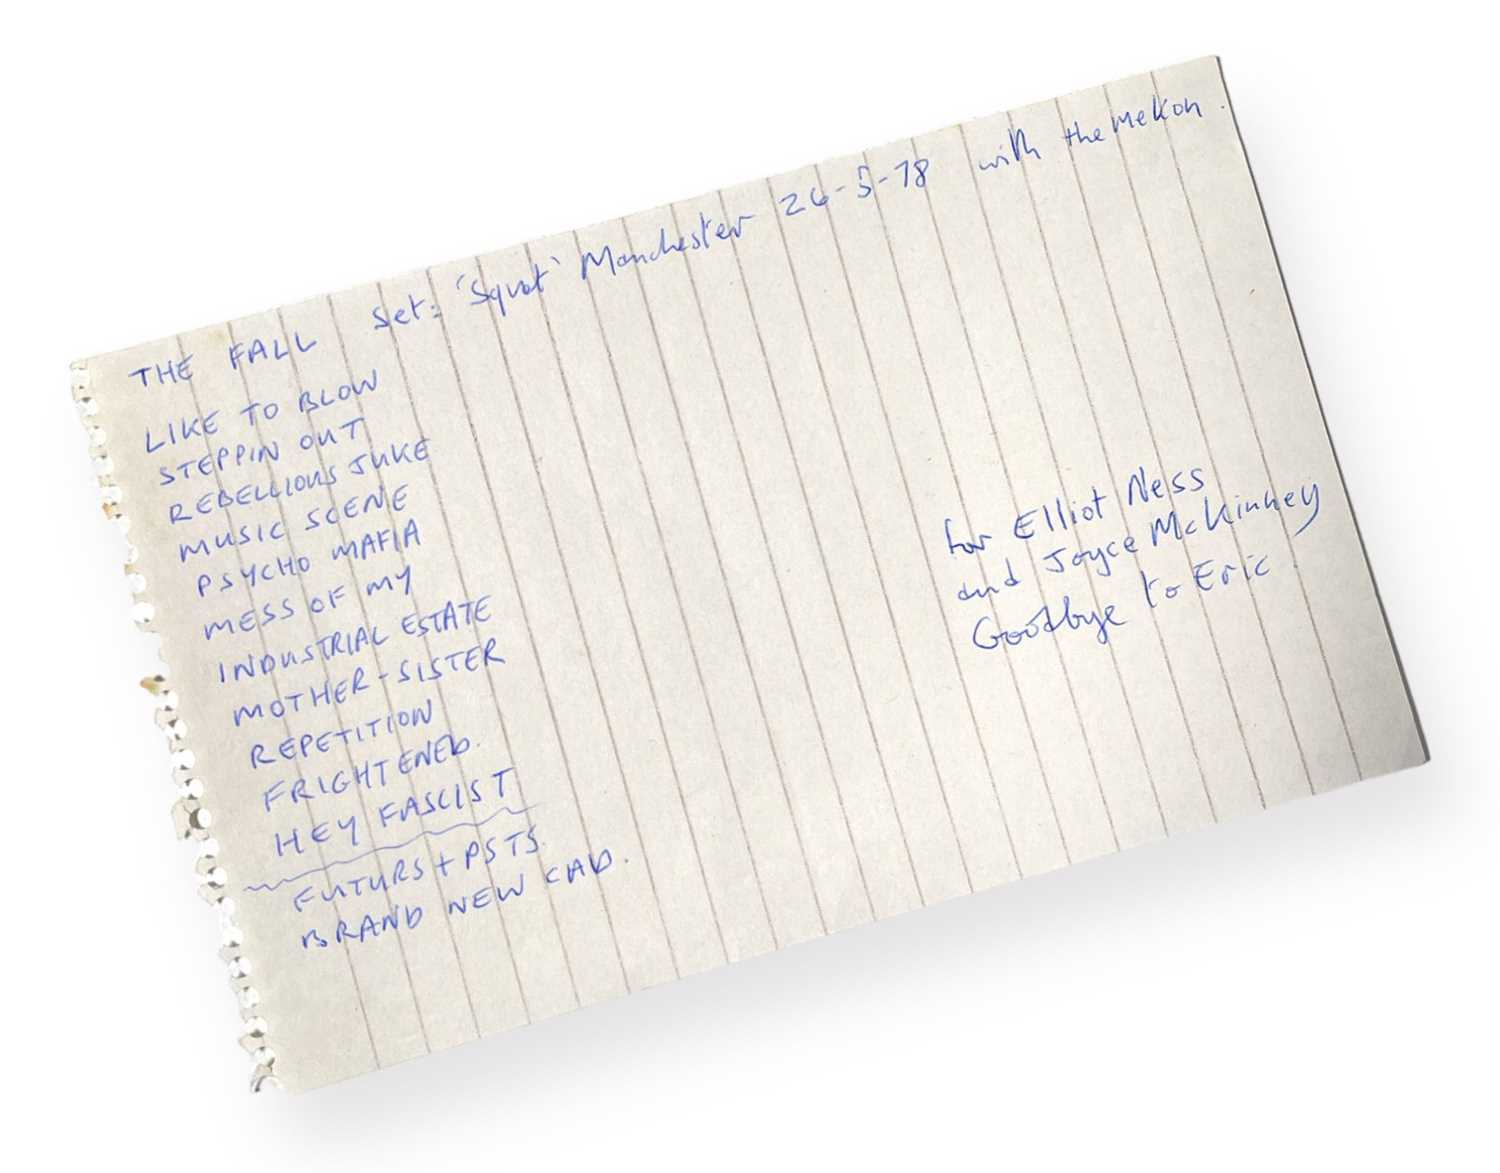 THE FALL set: 'Squat' Manchester 26-5-78 with the Mekon.
LIKE TO BLOW
STEPPIN OUT
REBELLIOUS JUKE
MUSIC SCENE
PSYCHO MAFIA
MESS OF MY
INDUSTRIAL ESTATE
MOTHER-SISTER
REPETITION
FRIGHTENED.
HEY FASCIST
FUTURS + PSTS.
BRAND NEW CAD.
for Elliot Ness
and Joyce McKinney
Goodbye to Eric